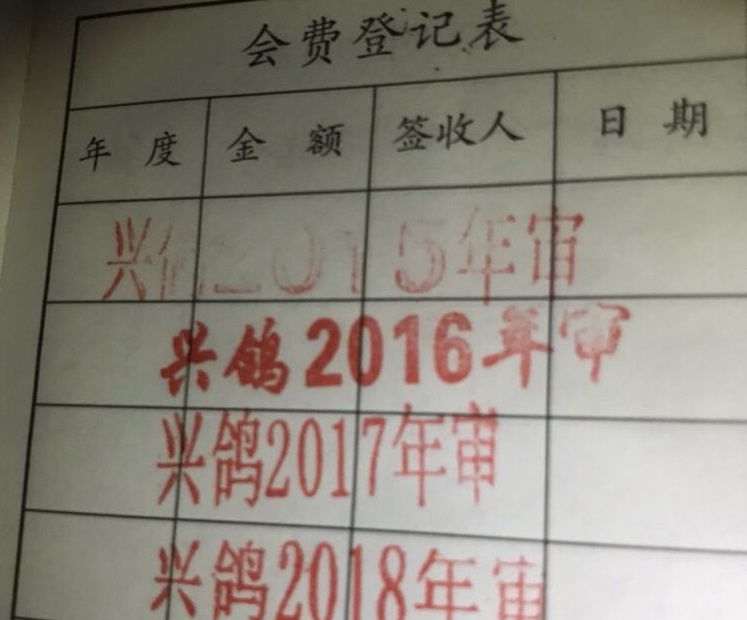 会费登记表
年度 金额 签收人 日期
兴鸽2015年审
兴鸽2016年审
兴鸽2017年审
兴鸽2018年审